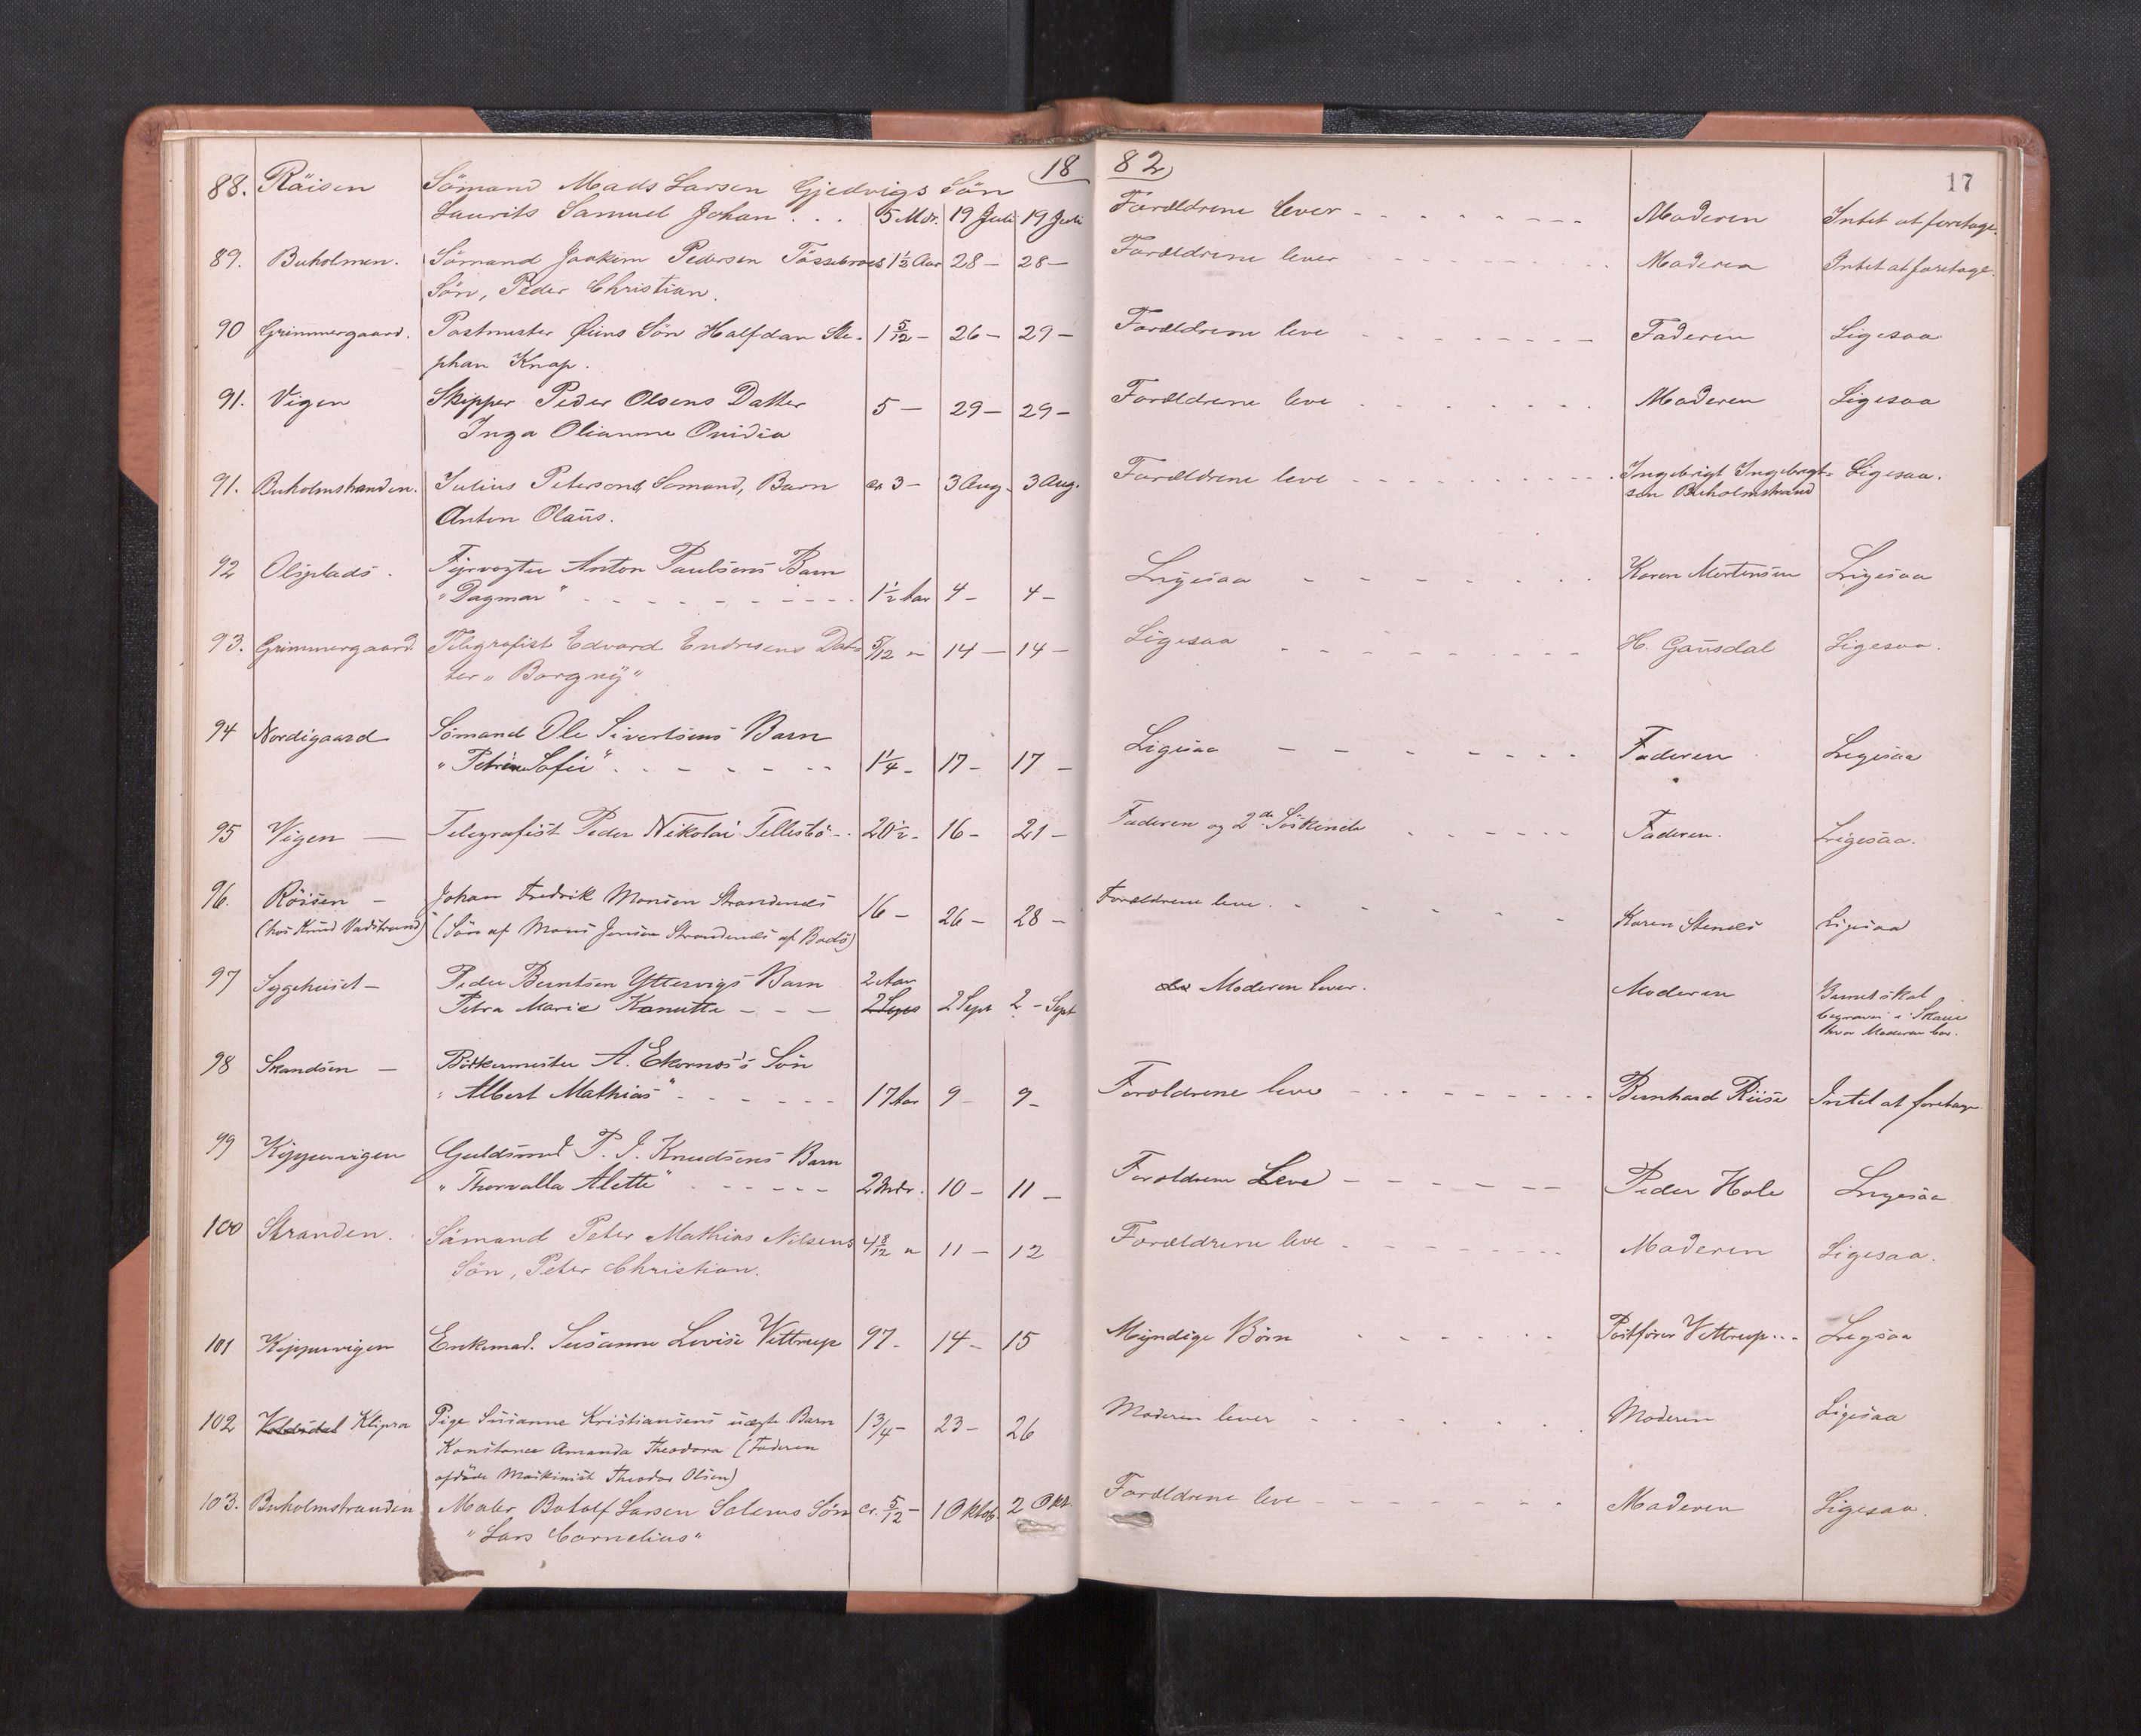 18 82
17
88. Räisen Sömand Mads Larsen Gjedvigs Sön
Laurits Samuel Johan . . . 5 Mdr. 19 Juli 19 Juli Forældrene lever Moderen Intet at foretage.
89. Buholmen. Sömand Joakim Pedersen Tössebroes 1½ Aar 28 – 28 – Forældrene lever Moderen Intet at foretage.
Sön, Peder Christian.
90 Grimmergaard. Postmester Sön Halfdan Ste- 1 5/12 – 26 – 29 – Forældrene leve Faderen Ligesaa
phan Knap.
91. Vigen Skipper Peder Olsens Datter 5 – 29 – 29 – Forældrene leve Moderen Ligesaa
Inga Olianne Ovidia
91. Buholmstranden. Julius Petersons, Somand, Barn ca 3 – 3 Aug. 3 Aug. Forældrene leve Ingebrigt Ingebrigt- Ligesaa.
Anton Olaus. sen Buholmstrand
92 Olsplads. Fyrvogter Anton Paulsens Barn
"Dagmar" 1½ Aar 4 – 4 – Ligesaa Karen Mortensen Ligesaa
93. Grimmergaard Telegrafist Edvard Endresens Dat- 5/12 " 14 – 14 – Ligesaa H. Gausdal Ligesaa.
ter "Borgny"
94 Nordigaard Sömand Ole Sivertsens Barn
"Petrine Sofie" 1¼ – 17 – 17 – Ligesaa Faderen Ligesaa
95 Vigen – Telegrafist Peder Nikolai Tellesbö 20½ – 16 – 21 – Faderen og 2de Söskende Faderen. Ligesaa.
96. Röisen – Johan Fredrik Monsen Strandenæs 16 – 26 – 28 – Forældrene leve. Karen Stenes Ligesaa
(hos Knud Vadstrand) (Sön af Mons Jensen Strandenæs af Bodö)
97 Sygehuset – Peder Berntsen Yttervigs Barn 2 Aar Moderen lever. Moderen Barnet skal
Petra Marie Kanutta – – – 2 Sept 2 Sept 2 – Sept begraves i Skaue
hvor Moderen bor.
98 Skandsen – Bödkermester A. Ekornæs's Sön
"Albert Mathias" 17 Aar 9 – 9 – Forældrene leve Bernhard Riise Intet at foretage
99 Kippervigen Guldsmed P. J. Knudsens Barn
"Thorvalla Alette" 2 Mdr. 10 – 11 – Forældrene Leve Peder Hole Ligesaa
100 Stranden. Sömand Peter Mathias Nilsens 4 8/12 " 11 – 12 Forældrene leve Moderen Ligesaa.
Sön, Peter Christian.
101 Kippervigen Enkemad. Susanne Lovise Vittrup 97 – 14 – 15 Myndige Börn Postförer Vittrup Ligesaa
102 Klipra Pige Susanne Kristiansens uægte Barn 1 3/4 – 23 – 26 Moderen lever Moderen Ligesaa
Konstance Amanda Theodora (Faderen
afdöde Maskinist Theodor Olsen)
103. Buholmstranden Maler Botolf Larsen Solems Sön cr. 5/12 – 1 Oktob. 2 Okt. Forældrene leve Moderen Ligesaa.
"Lars Cornelius"